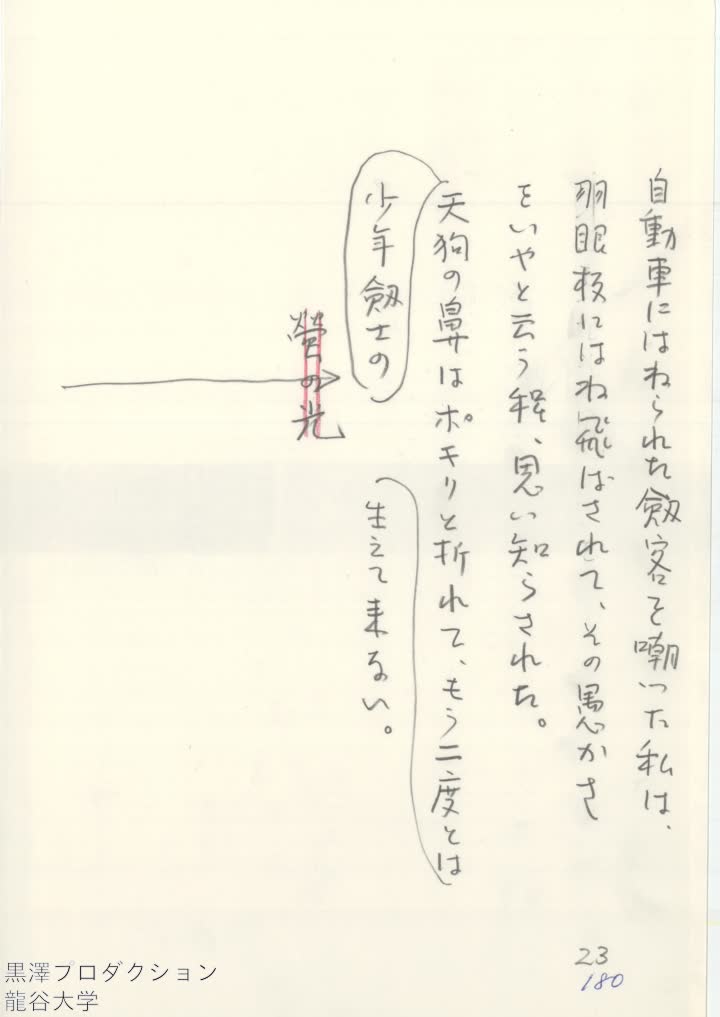 自動車にはねられた劔客を嘲った私は、
羽眼板にはね飛ばされて、その愚かさ
をいやと云う程、思い知らされた。
天狗の鼻はポキリと折れて、もう二度とは
少年劔士の
生えて来ない。
螢の光
23
180
黒澤プロダクション
龍谷大学